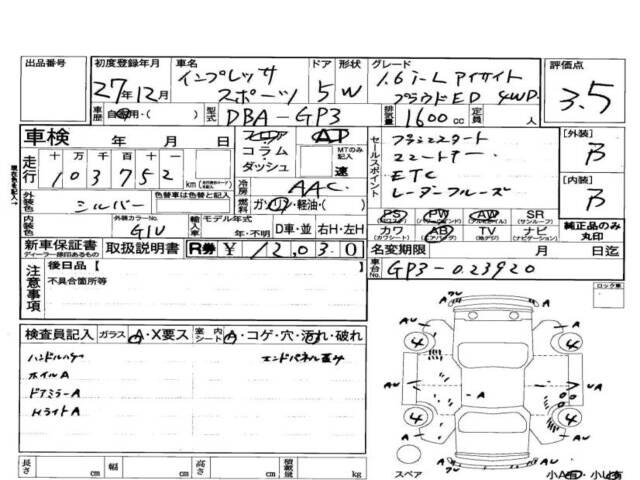 出品番号
初度登録年月
車名
ドア 形状
グレード
評価点
27年12月
インプレッサ
スポーツ
5 W
1.6i-L アイサイト
プラウドED 4WD
3.5
車歴 自家用・( )
型式 DBA-GP3
排気量 1600cc
定員 人
車検 年 月 日
フロア
コラム・
ダッシュ
AT
MTのみ記入
速
セールスポイント
ETC
レーダークルーズ
[外装]
B
[内装]
B
走行
十 万 千 百 十 一
103752
km
冷房 AAC
燃料 ガソリン・軽油・( )
外装色 シルバー
色替車は色替と記入
内装色
外装カラーNo.
G1U
輸入車
モデル年式
年・不明
D車・並 右H・左H
PS PW AW SR
(サンルーフ)
カワ AB TV ナビ
(カワシート) (エアバッグ) (地デジ) (ナビゲーション)
純正品のみ
丸印
新車保証書
ディーラー捺印あるもの
取扱説明書
R券 ¥12,030
名変期限 月 日迄
車台No. GP3-023920
注意事項
後日品 [ ]
不具合箇所等
ロック車
検査員記入
ガラス A・X要ス
室内シート A・コゲ・穴・汚れ・破れ
ホイルA
ドアミラーA
HライトA
エンドパネル歪み
4 4
4 4
長さ cm 幅 cm 高さ cm 積載量 kg
スペア
小A有・小U有